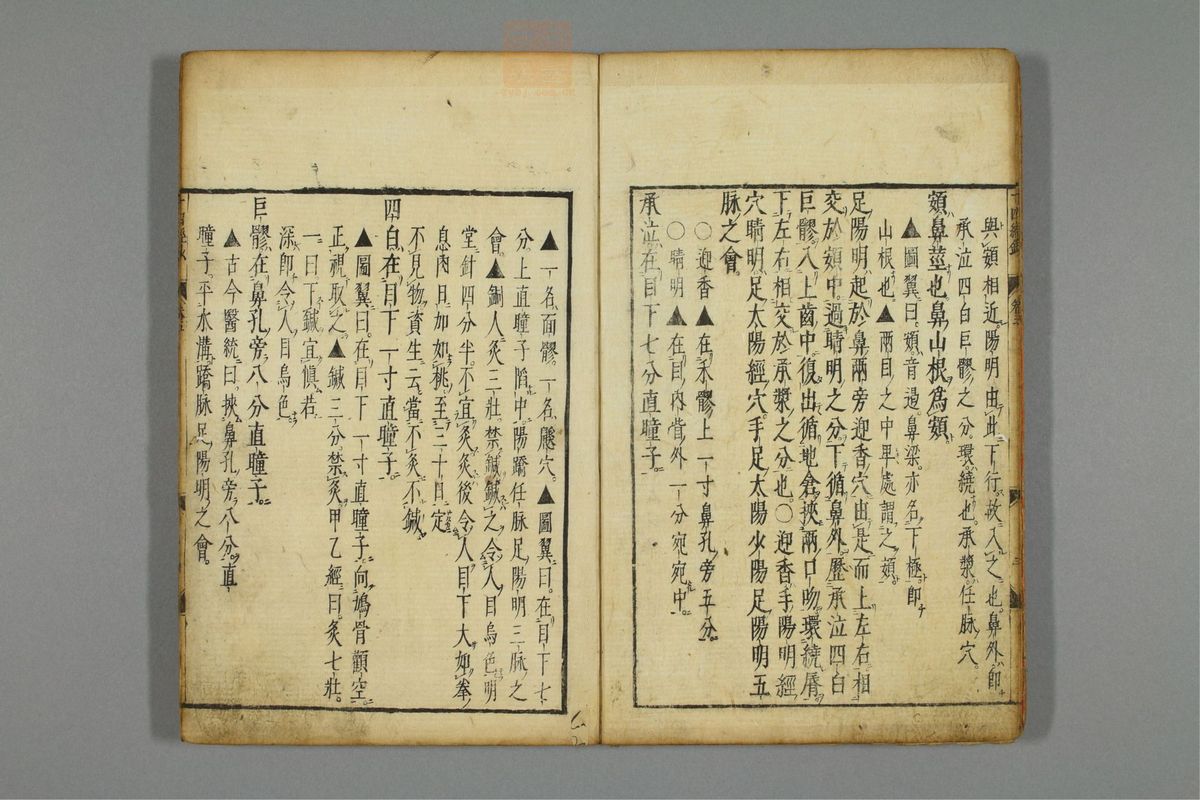 與頞相近陽明由此下行故入之也鼻外即
承泣四白巨髎之分環繞也承漿任脉穴
頞鼻莖也鼻山根爲頞
▲圖翼曰頞音遏鼻梁亦名下極即
山根也▲兩目之中畢處謂之頞
足陽明起於鼻兩旁迎香穴由是而上左右相
交於頞中過睛明之分下循鼻外歷承泣四白
巨髎入上齒中復出循地倉挾兩口吻環繞脣
下左右相交於承漿之分也○迎香手陽明經
穴睛明足太陽經穴手足太陽少陽足陽明五
脉之會
○迎香▲在禾髎上一寸鼻孔旁五分
○睛明▲在目內眥外一分宛宛中
承泣在目下七分直瞳子
▲一名面髎一名鼷穴▲圖翼曰在目下七
分上直瞳子陷中陽蹻任脉足陽明三脉之
會▲銅人灸三壯禁鍼鍼之令人目烏色明
堂針四分半不宜灸灸後令人目下大如拳
息肉日加如桃至三十日定
不見物資生云當不灸不鍼
四白在目下一寸直瞳子
▲圖翼曰在目下一寸直瞳子向鳩骨顴空
正視取之▲鍼三分禁灸甲乙經曰灸七壯
一曰下鍼宜愼若
深即令人目烏色
巨髎在鼻孔旁八分直瞳子
▲古今醫統曰挾鼻孔旁八分直
瞳子平水溝蹻脉足陽明之會